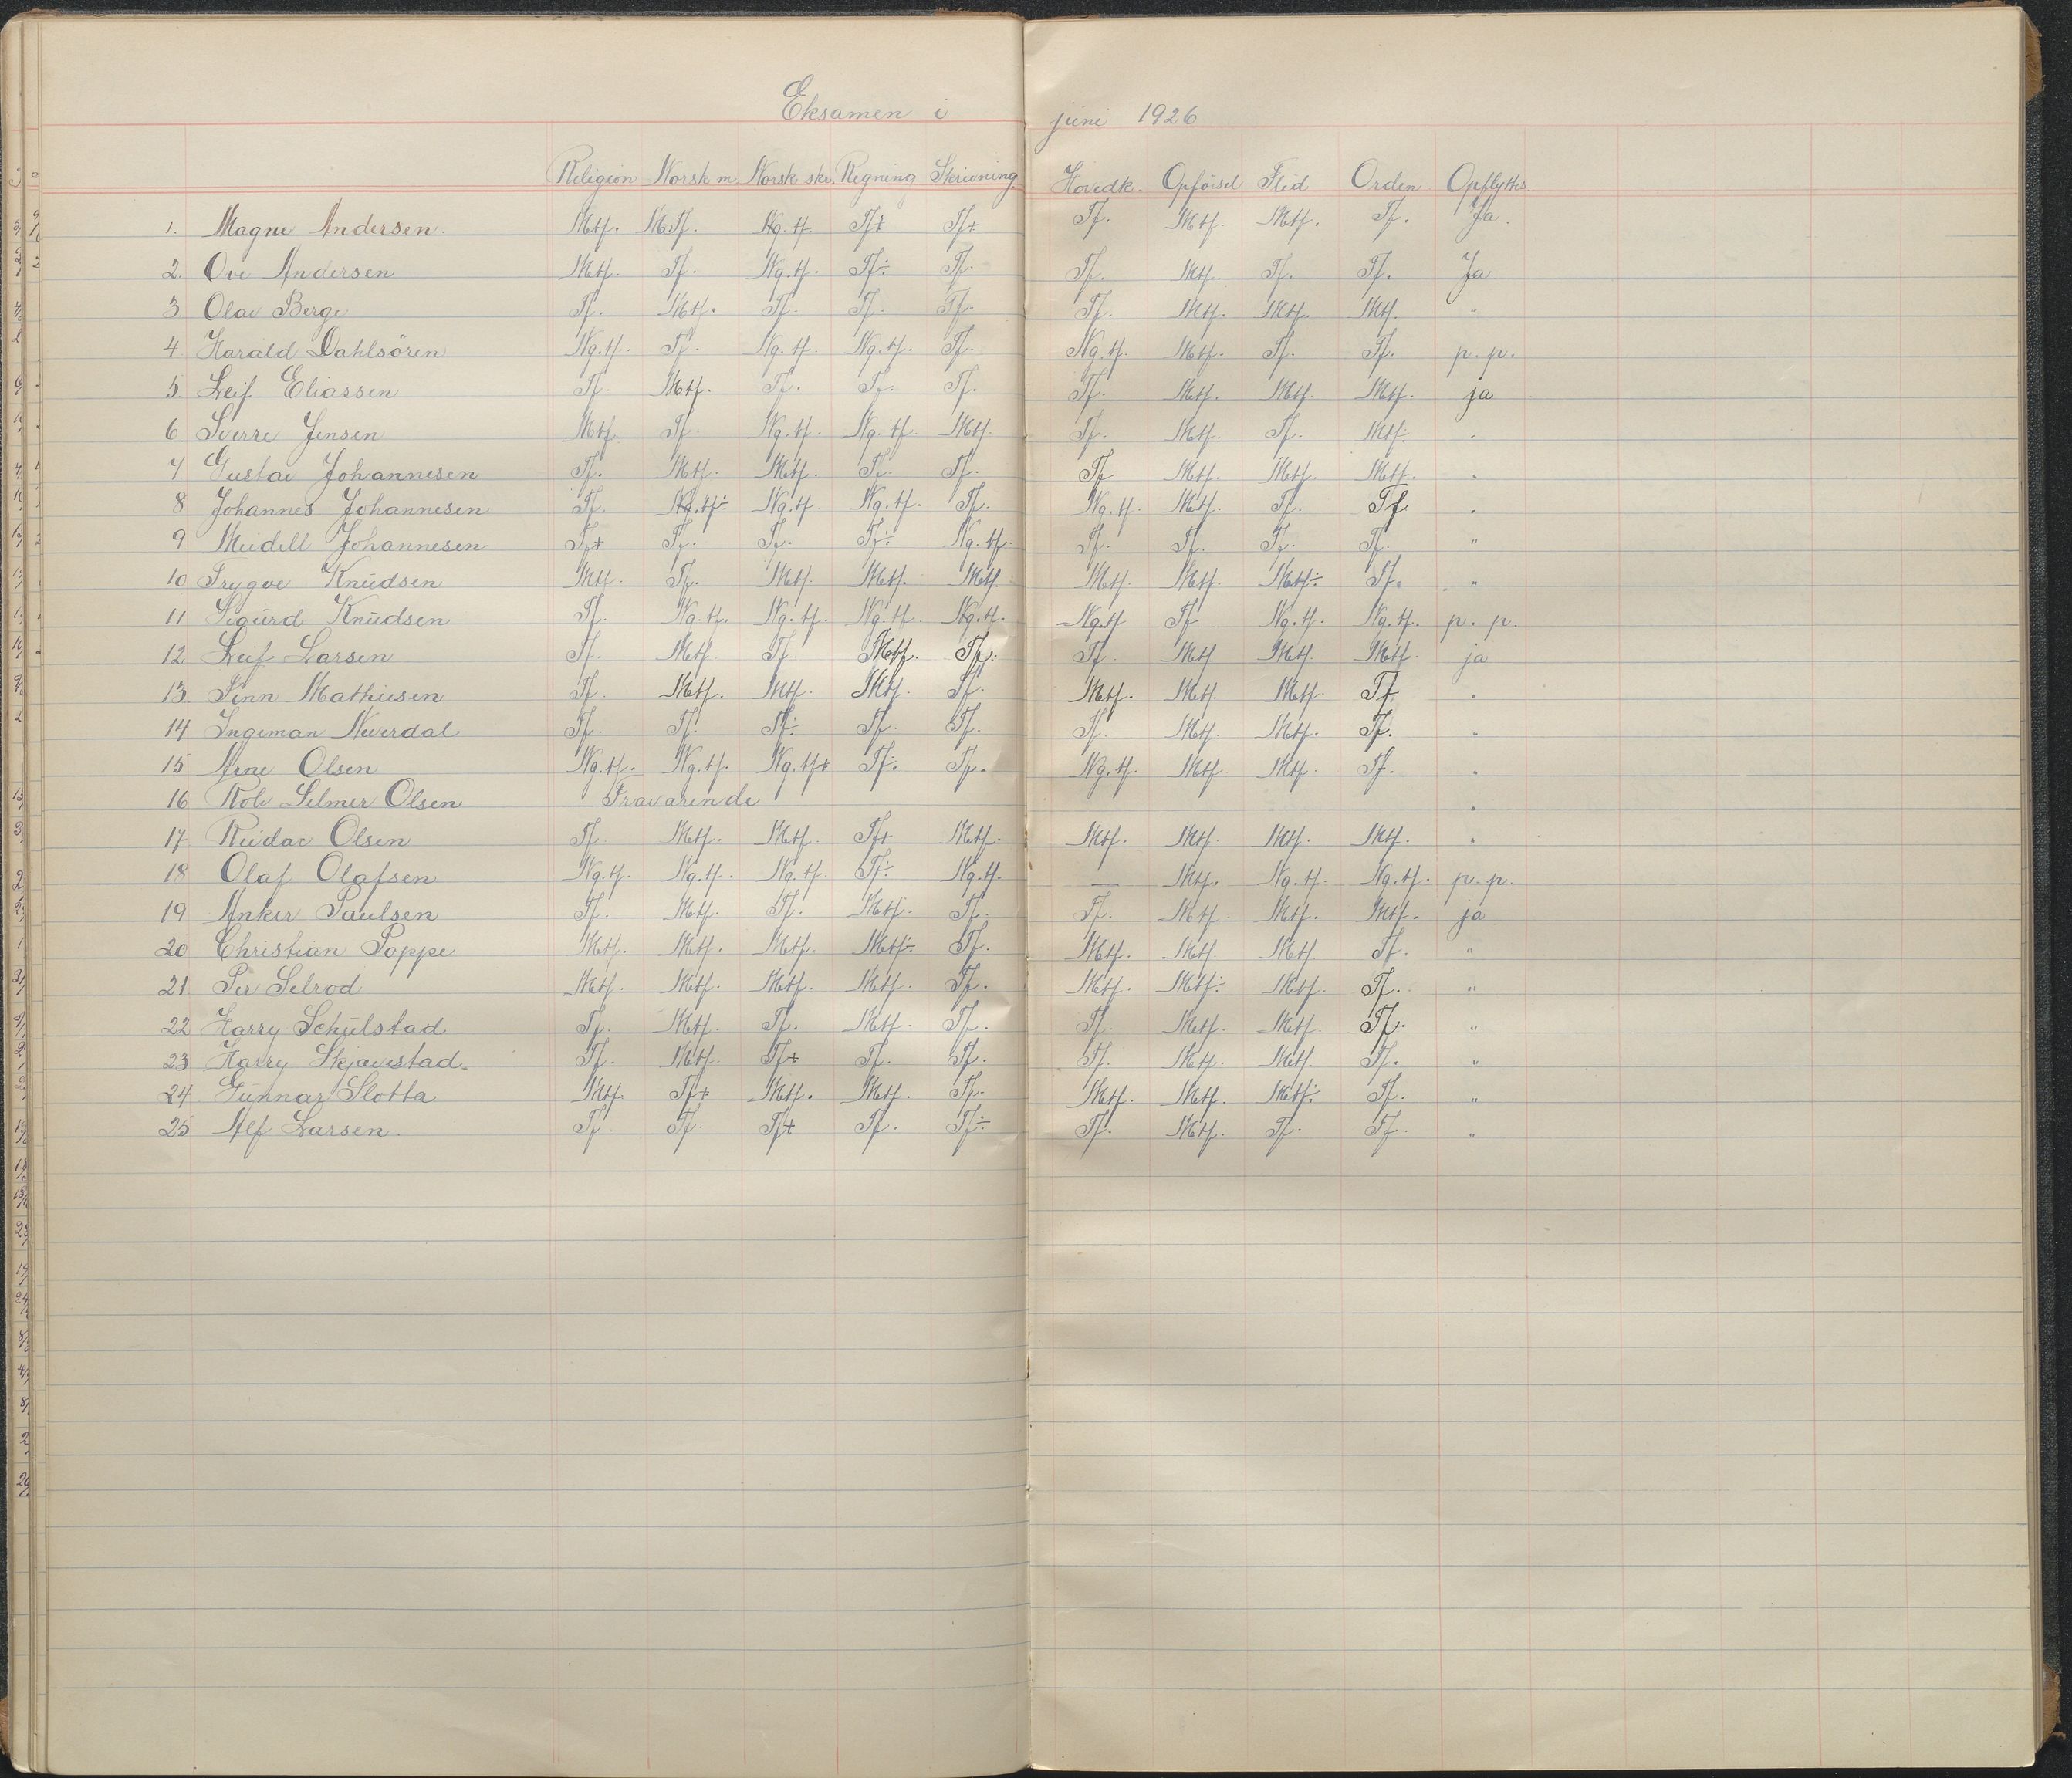 Eksamen i juni 1926
Religion Norsk m. Norsk skr. Regning Skrivning Hovedk. Opförsel Flid Orden Opflyttes.
1. Magne Andersen. Mtf. M.Tf. Ng. tf. Tf+ Tf+ Tf. Mtf. Mtf. Tf. Ja.
2. Ove Andersen Mtf. Tf. Ng. tf. Tf÷ Tf. Tf. Mtf. Tf. Tf. Ja
3 Olav Berge Tf. Mtf. Tf. Tf. Tf. Tf. Mtf. Mtf. Mtf. "
4 Harald Dahlsören Ng. tf. Tf. Ng. tf. Ng. tf. Tf. Ng. tf. Mtf. Tf. Tf. p. p.
5 Leif Eliassen Tf. Mtf. Tf. Tf. Tf. Tf. Mtf. Mtf. Mtf. ja
6 Sverre Jensen Mtf. Tf. Ng. tf. Ng. tf. Mtf. Tf. Mtf. Tf. Mtf. "
7 Gustav Johannesen Tf. Mtf. Mtf. Tf. Tf. Tf Mtf. Mtf. Mtf. "
8 Johannes Johannesen Tf. Ng. tf÷ Ng. tf. Ng. tf. Tf. Ng. tf. Mtf. Tf. Tf. "
9 Meidell Johannesen Tf+ Tf. Tf. Tf÷ Ng. tf. Tf. Tf. Tf. Tf. "
10 Trygve Knudsen Mtf. Tf. Mtf. Mtf. Mtf. Mtf. Mtf. Mtf÷ Tf. "
11 Sigurd Knudsen Tf. Ng. tf. Ng. tf. Ng. tf. Ng. tf. Ng. tf Tf Ng. tf. Ng. tf. p. p.
12 Leif Larsen Tf. Mtf. Tf. Mtf. Tf. Tf. Mtf Mtf. Mtf. ja
13. Finn Mathiesen Tf. Mtf. Mtf. Mtf. Tf. Mtf. Mtf. Mtf. Tf. "
14 Ingeman Neverdal Tf. Tf. Tf÷ Tf. Tf. Tf. Mtf. Mtf. Tf. "
15 Arne Olsen Ng. tf. Ng. tf. Ng. tf+ Tf÷ Tf. Ng. tf. Mtf. Mtf. Tf. "
16 Rolv Selmer Olsen Fraværende "
17 Reidar Olsen Tf. Mtf. Mtf. Tf+ Mtf. Mtf. Mtf. Mtf. Mtf. "
18 Olaf Olafsen Ng. tf. Ng. tf. Ng. tf. Tf÷ Ng. tf. — Mtf. Ng. tf. Ng. tf. p. p.
19 Anker Paulsen Tf. Mtf. Tf. Mtf. Tf. Tf. Mtf. Mtf. Mtf. ja
20 Christian Poppe Mtf. Mtf. Mtf. Mtf÷ Tf. Mtf. Mtf. Mtf Tf. "
21 Per Selrod Mtf. Mtf. Mtf. Mtf. Tf. Mtf. Mtf÷ Mtf. Tf. "
22 Harry Schulstad Tf. Mtf. Tf. Mtf. Tf. Tf. Mtf. Mtf. Tf. "
23 Harry Skjavestad. Tf. Mtf. Tf+ Tf. Tf. Tf. Mtf. Mtf. Tf. "
24. Gunnar Slotta Mtf. Tf+ Mtf. Mtf. Tf. Mtf. Mtf. Mtf÷ Tf. "
25 Alf Larsen. Tf. Tf. Tf+ Tf. Tf÷ Tf. Mtf. Tf. Tf. "